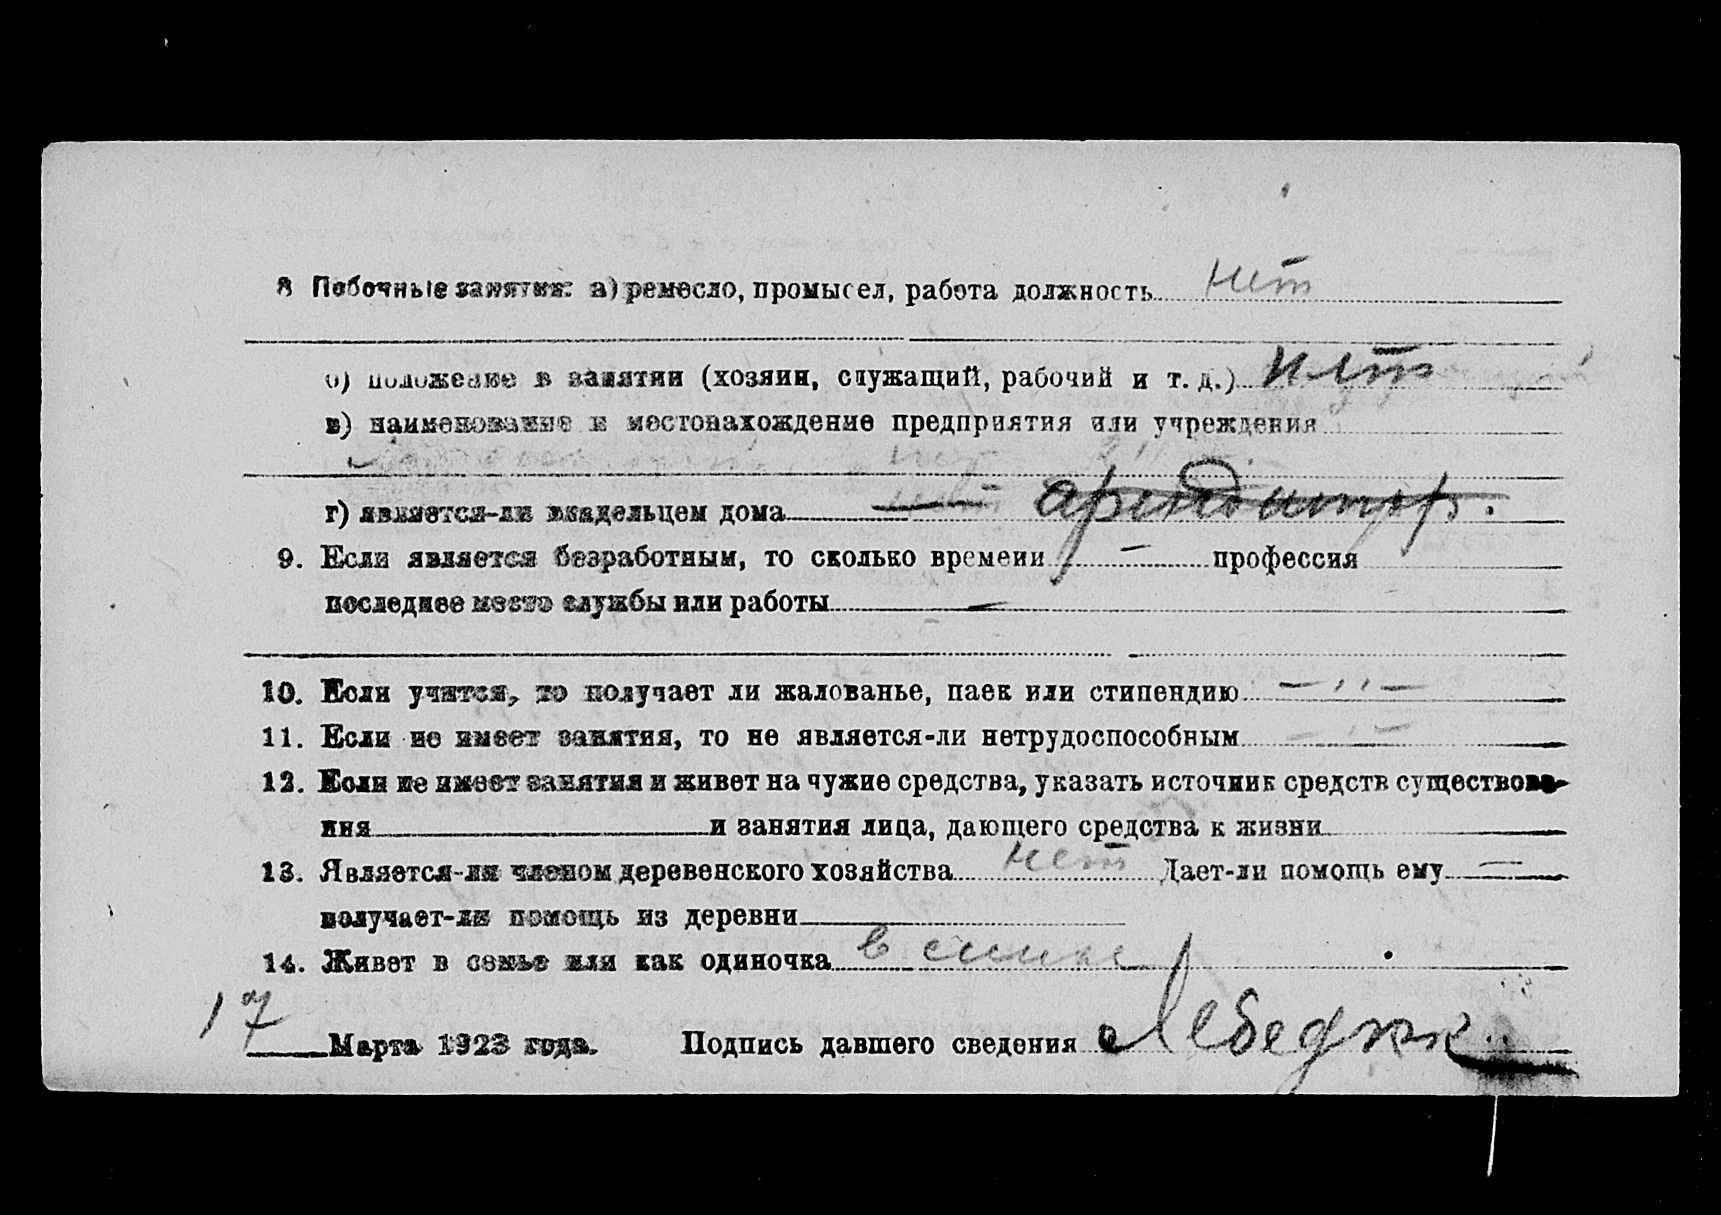 8 Побочные занятия: а) ремесло, промысел, работа должность нет
б) положение в занятии (хозяин, служащий, рабочий и т. д.) нет
в) наименование и местонахождение предприятия или учреждения
нет
г) является-ли владельцем дома нет арендатор.
9. Если является безработным, то сколько времени — профессия
последнее место службы или работы —
10. Если учится, то получает ли жалованье, паек или стипендию — ״ —
11. Если не имеет занятия, то не является-ли нетрудоспособным — ״ —
12. Если не имеет занятия и живет на чужие средства, указать источник средств существова-
ния и занятия лица, дающего средства к жизни
13. Является-ли членом деревенского хозяйства нет Дает-ли помощь ему —
получает-ли помощь из деревни
14. Живет в семье или как одиночка в семье
17 Марта 1923 года. Подпись давшего сведения